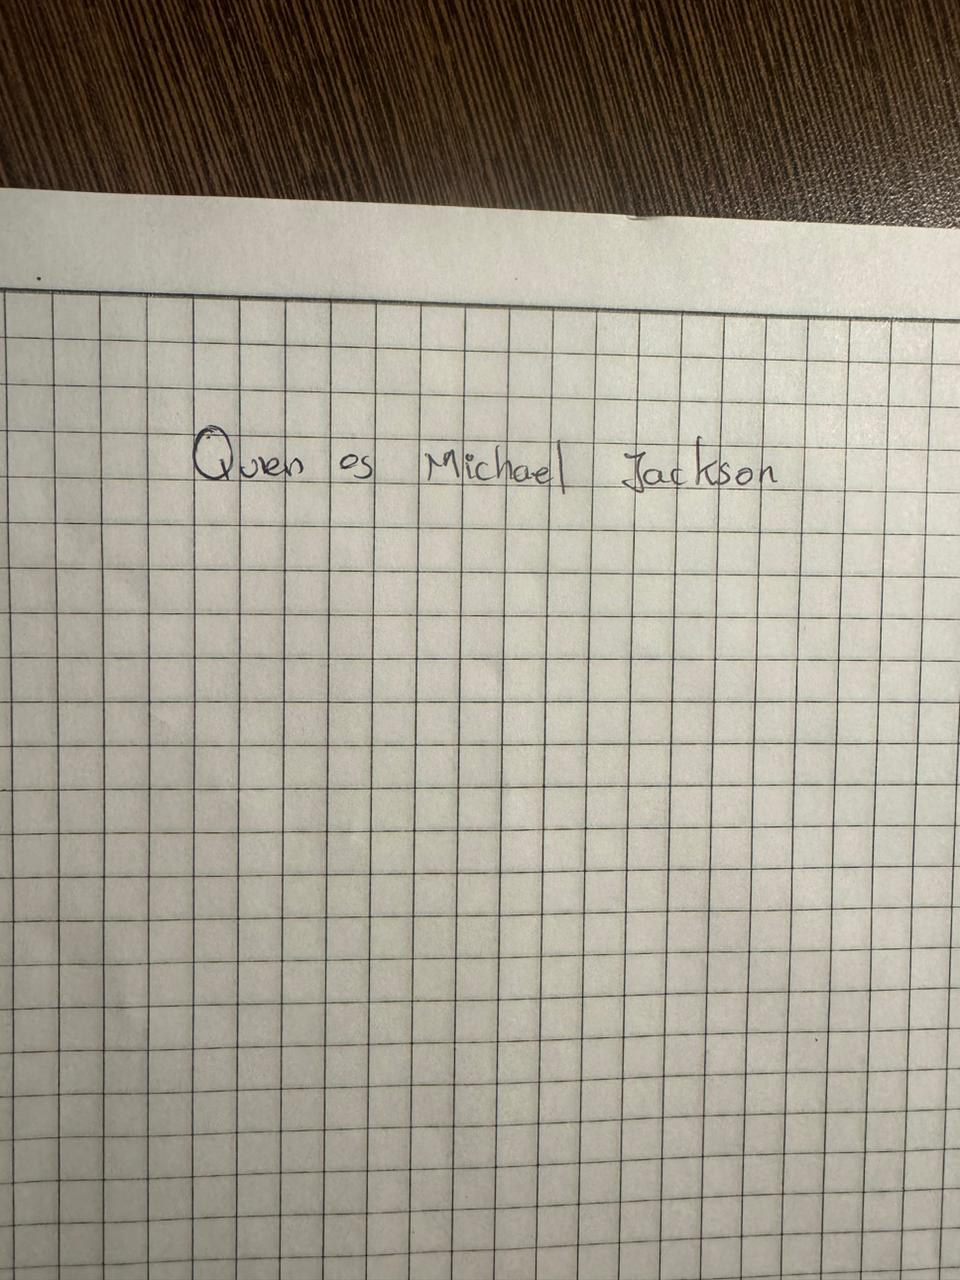 Quien es Michael Jackson